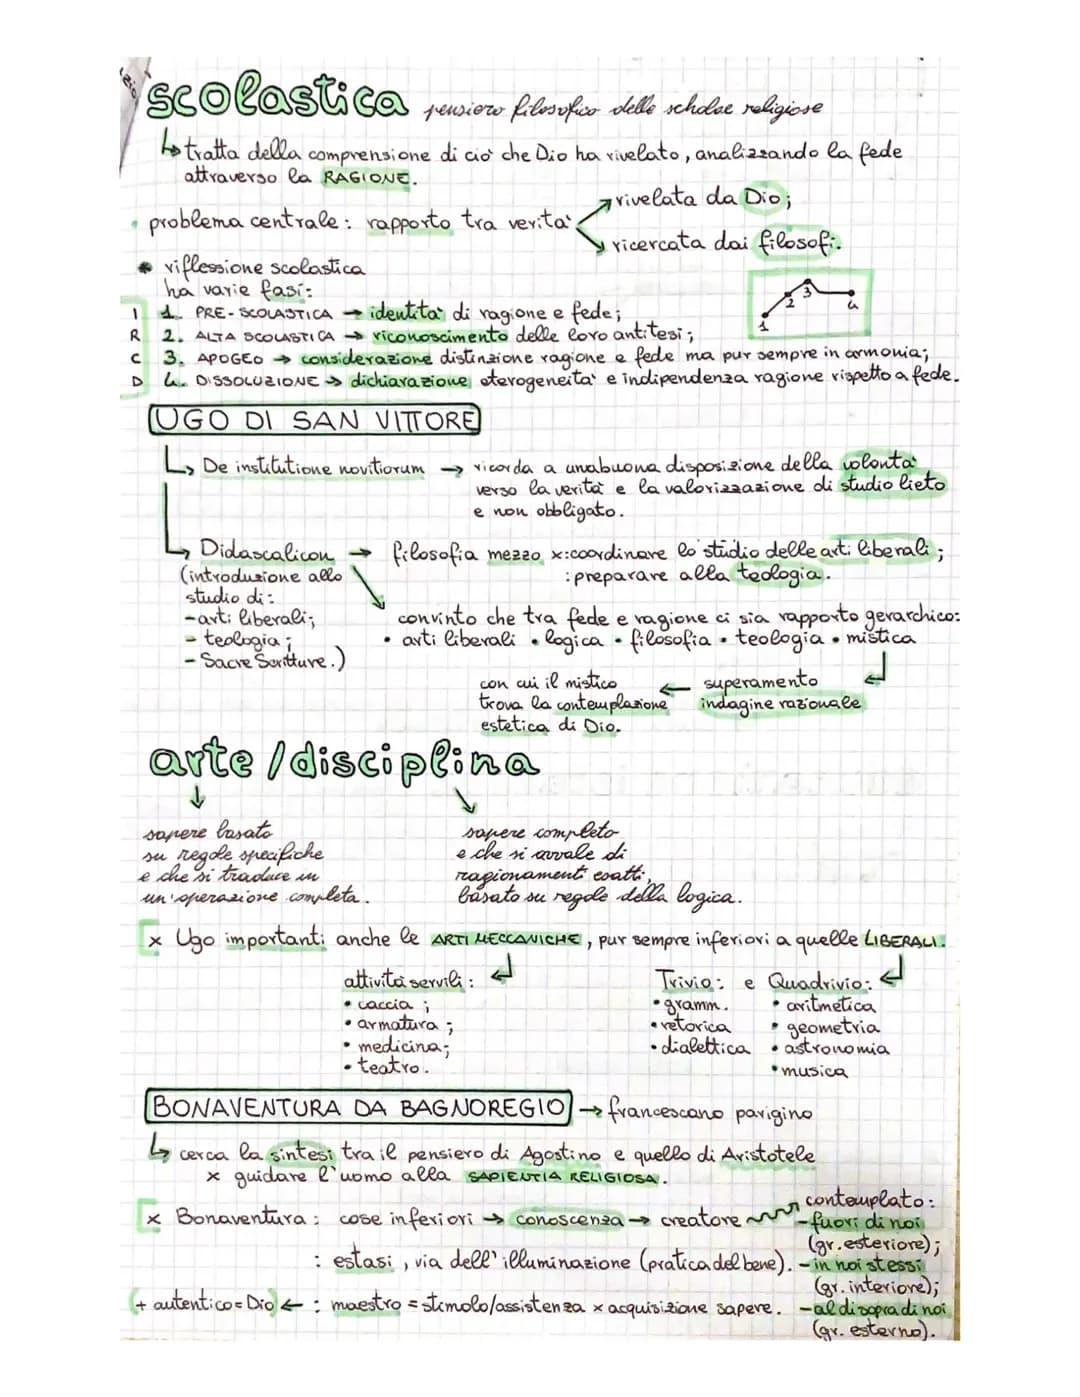 scolastica pensiero filosofico delle scholae religiose
↳ tratta della comprensione di ciò che Dio ha rivelato, analizzando la fede
attraverso la RAGIONE.
• problema centrale: rapporto tra verità
rivelata da Dio;
ricercata dai filosofi.
• riflessione scolastica
ha varie fasi:
I 1. PRE-SCOLASTICA → identità di ragione e fede;
R 2. ALTA SCOLASTICA → riconoscimento delle loro antitesi;
C 3. APOGEO → considerazione distinzione ragione e fede ma pur sempre in armonia;
D 4. DISSOLUZIONE → dichiarazione eterogeneità e indipendenza ragione rispetto a fede.
1 2 3 4
UGO DI SAN VITTORE
↳ De institutione novitiorum → ricorda a una buona disposizione della volontà
verso la verità e la valorizzazione di studio lieto
e non obbligato.
↳ Didascalicon → filosofia mezzo x: coordinare lo studio delle arti liberali;
: preparare alla teologia.
(introduzione allo
studio di:
- arti liberali;
- teologia;
- Sacre Scritture.)
convinto che tra fede e ragione ci sia rapporto gerarchico:
• arti liberali • logica • filosofia • teologia • mistica
superamento
indagine razionale
con cui il mistico
trova la contemplazione
estetica di Dio.
arte / disciplina
sapere basato
su regole specifiche
e che si traduce in
un'operazione completa.
sapere completo
e che si avvale di
ragionamenti esatti,
basato su regole della logica.
x Ugo importanti anche le ARTI MECCANICHE, pur sempre inferiori a quelle LIBERALI.
attività servili:
• caccia;
• armatura;
• medicina;
• teatro.
Trivio: e Quadrivio:
• gramm. • aritmetica
• retorica • geometria
• dialettica • astronomia
• musica
BONAVENTURA DA BAGNOREGIO → francescano parigino
↳ cerca la sintesi tra il pensiero di Agostino e quello di Aristotele
x guidare l'uomo alla SAPIENTIA RELIGIOSA.
x Bonaventura: cose inferiori → conoscenza → creatore
: estasi, via dell'illuminazione (pratica del bene).
(+ autentico = Dio) ← : maestro = stimolo/assistenza x acquisizione sapere.
contemplato:
- fuori di noi
(gr. esteriore);
- in noi stessi
(gr. interiore);
- al di sopra di noi
(gr. esterno).